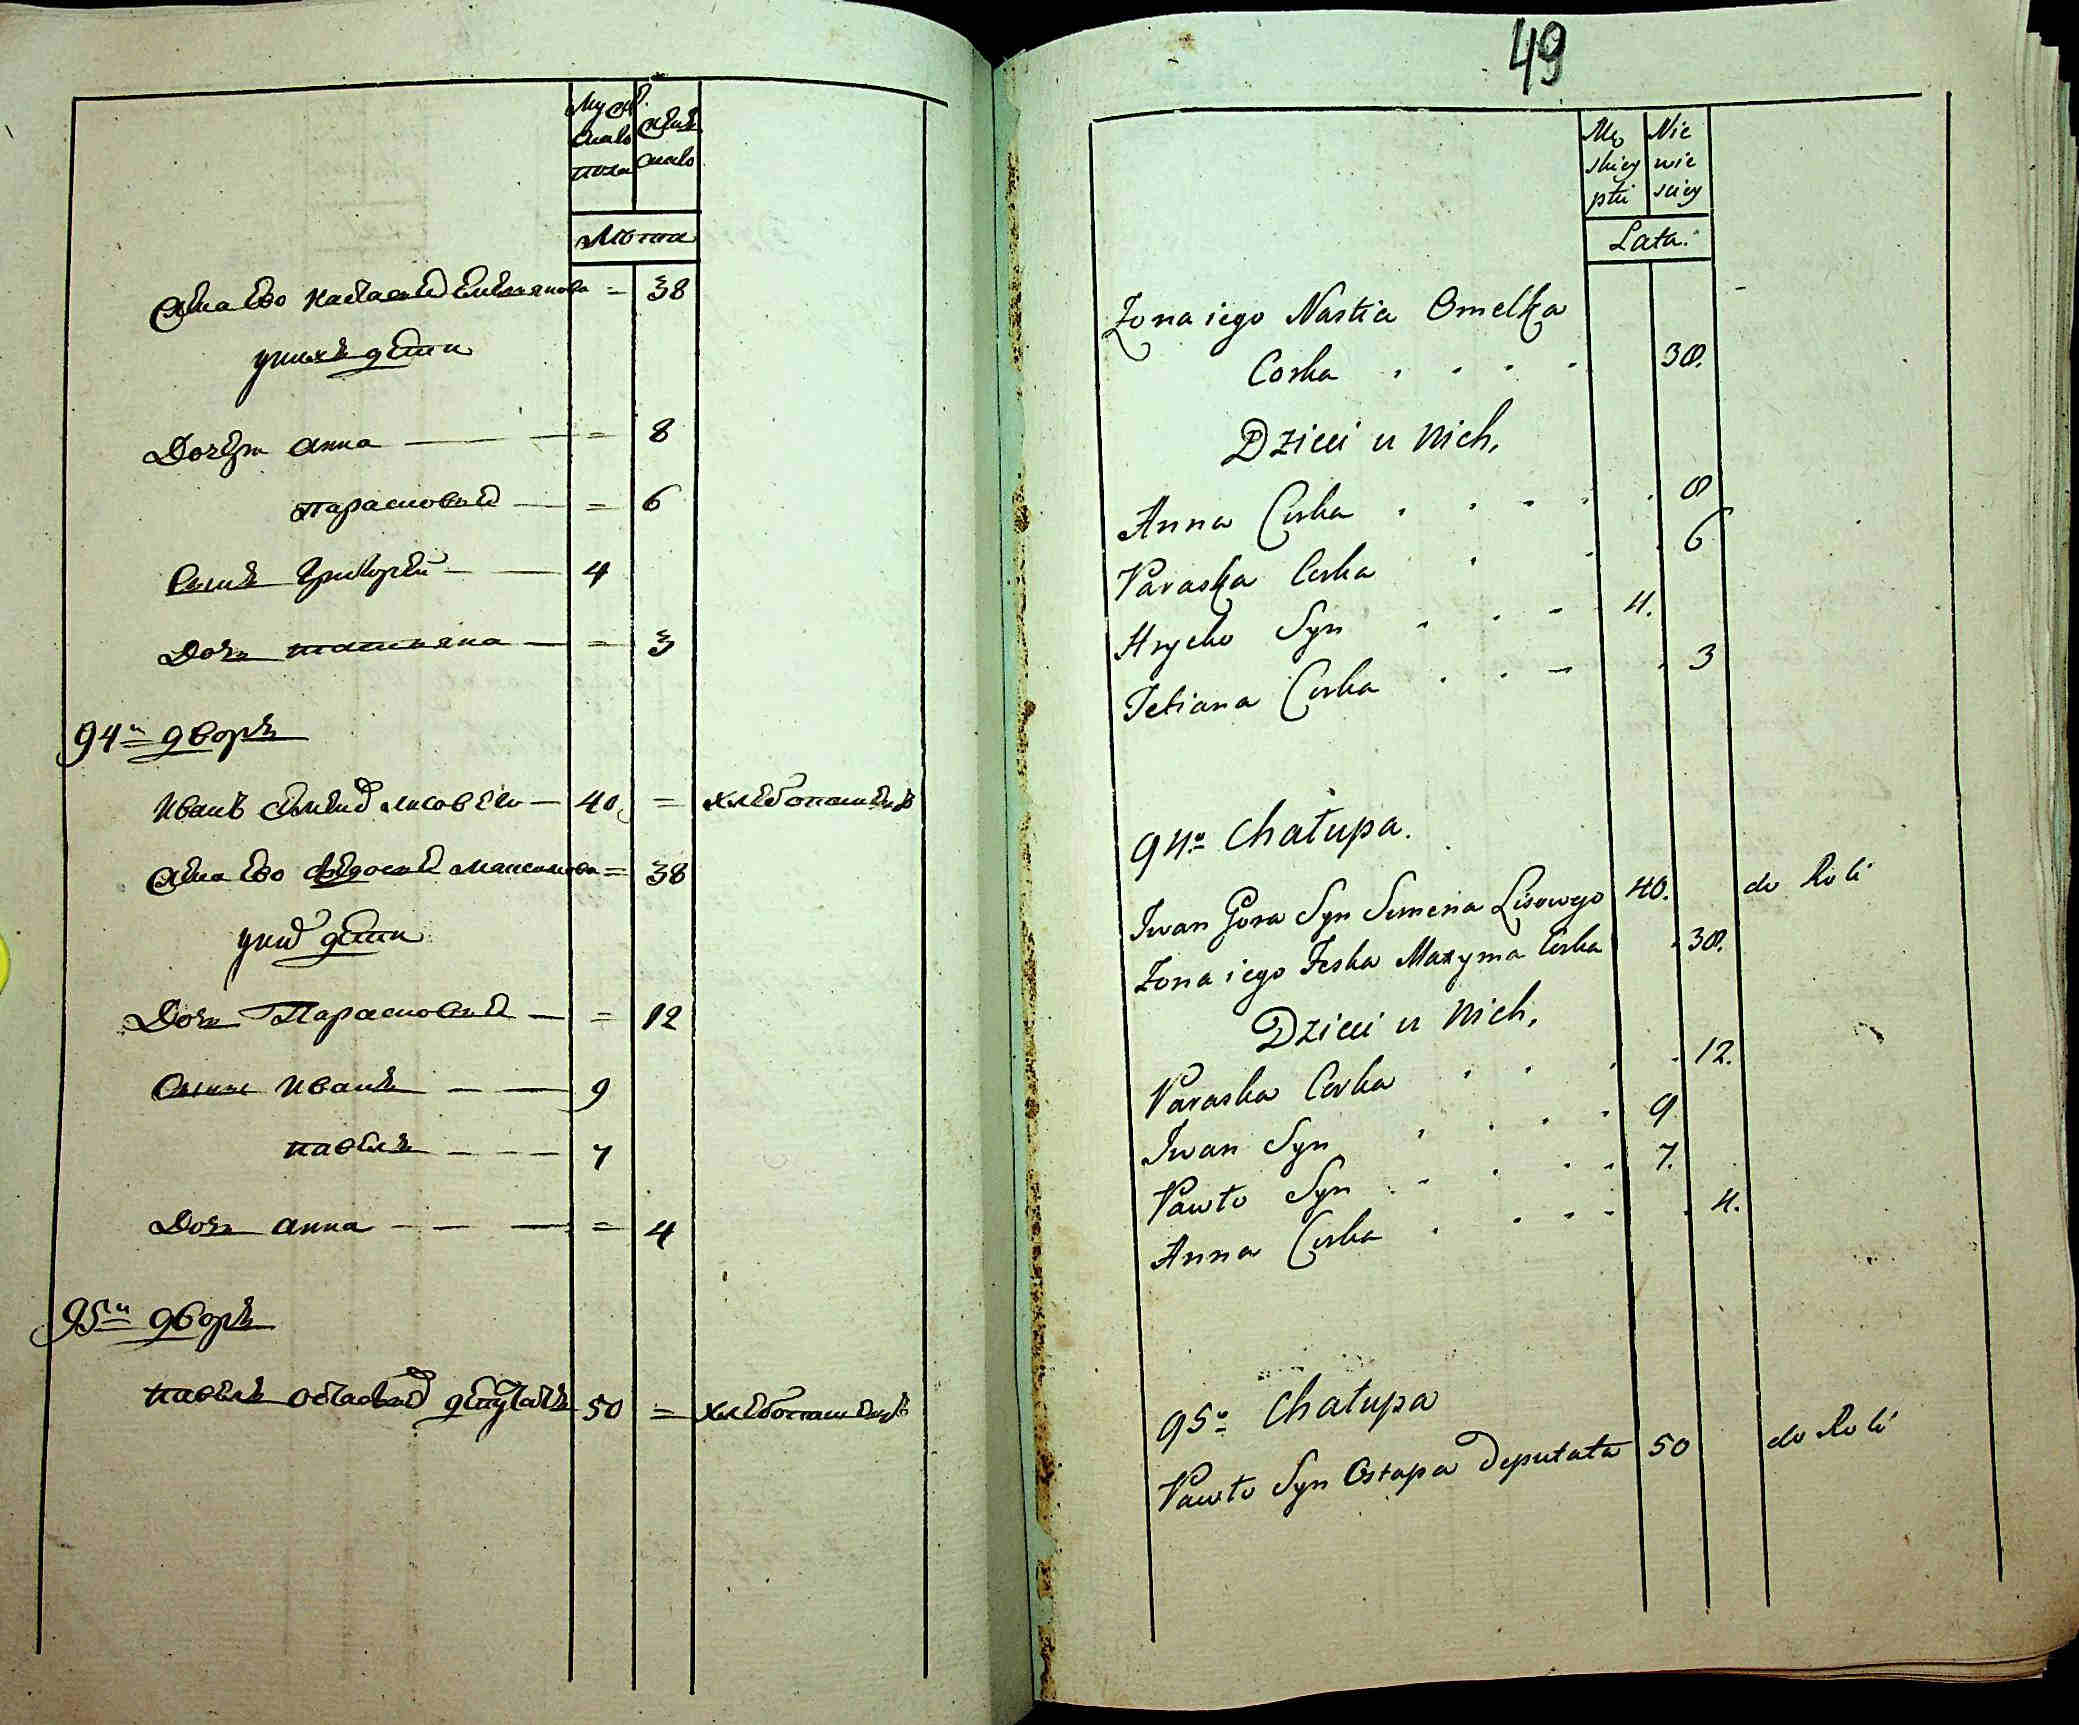 Муже
скаго
пола
Жен
скаго
Лѣта
Жена Ево Настасия Емельянова = 38
у нихъ дети
Дочери Анна = 8
Парасковия = 6
Сынъ Григорей 4
Дочь Татьяна = 3
94й дворъ
Иванъ Лисовеи 40 = хлебопашецъ
Жена Ево Федосия Максимова = 38
дети
Дочь Парасковия = 12
Сыны Иванъ 9
Павелъ 7
Дочь Анна = 4
95й дворъ
Павелъ Остапов Депутатъ 50 = хлебопашецъ
49
Mę
skiey
płci
Nie
wie
sciey
Lata.
Zona iego Nastia Omelka
Corka . . . . 38.
Dzieci u nich,
Anna Corka . . . . . 8
Paraska Corka . . . 6
Hryćko Syn . . . 4.
Tetiana Corka . . . . 3
94a Chałupa.
Iwan Gora Syn Semena Lisowego 40. do Roli
Zona iego Feska Maxyma Corka . 38.
Dzieci u nich,
Paraska Corka . . . . 12.
Iwan Syn . . . . 9
Pawło Syn . . . . . 7.
Anna Corka . . . . . 4.
95a Chałupa
Pawło Syn Ostapa Deputata 50 do Roli